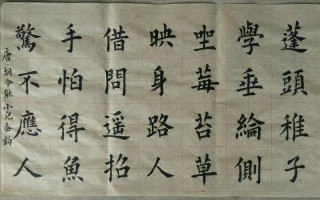 蓬頭稚子
學垂綸側
坐莓苔草
映身路人
借問遥招
手怕得魚
驚不應人
唐·胡令能小兒垂釣